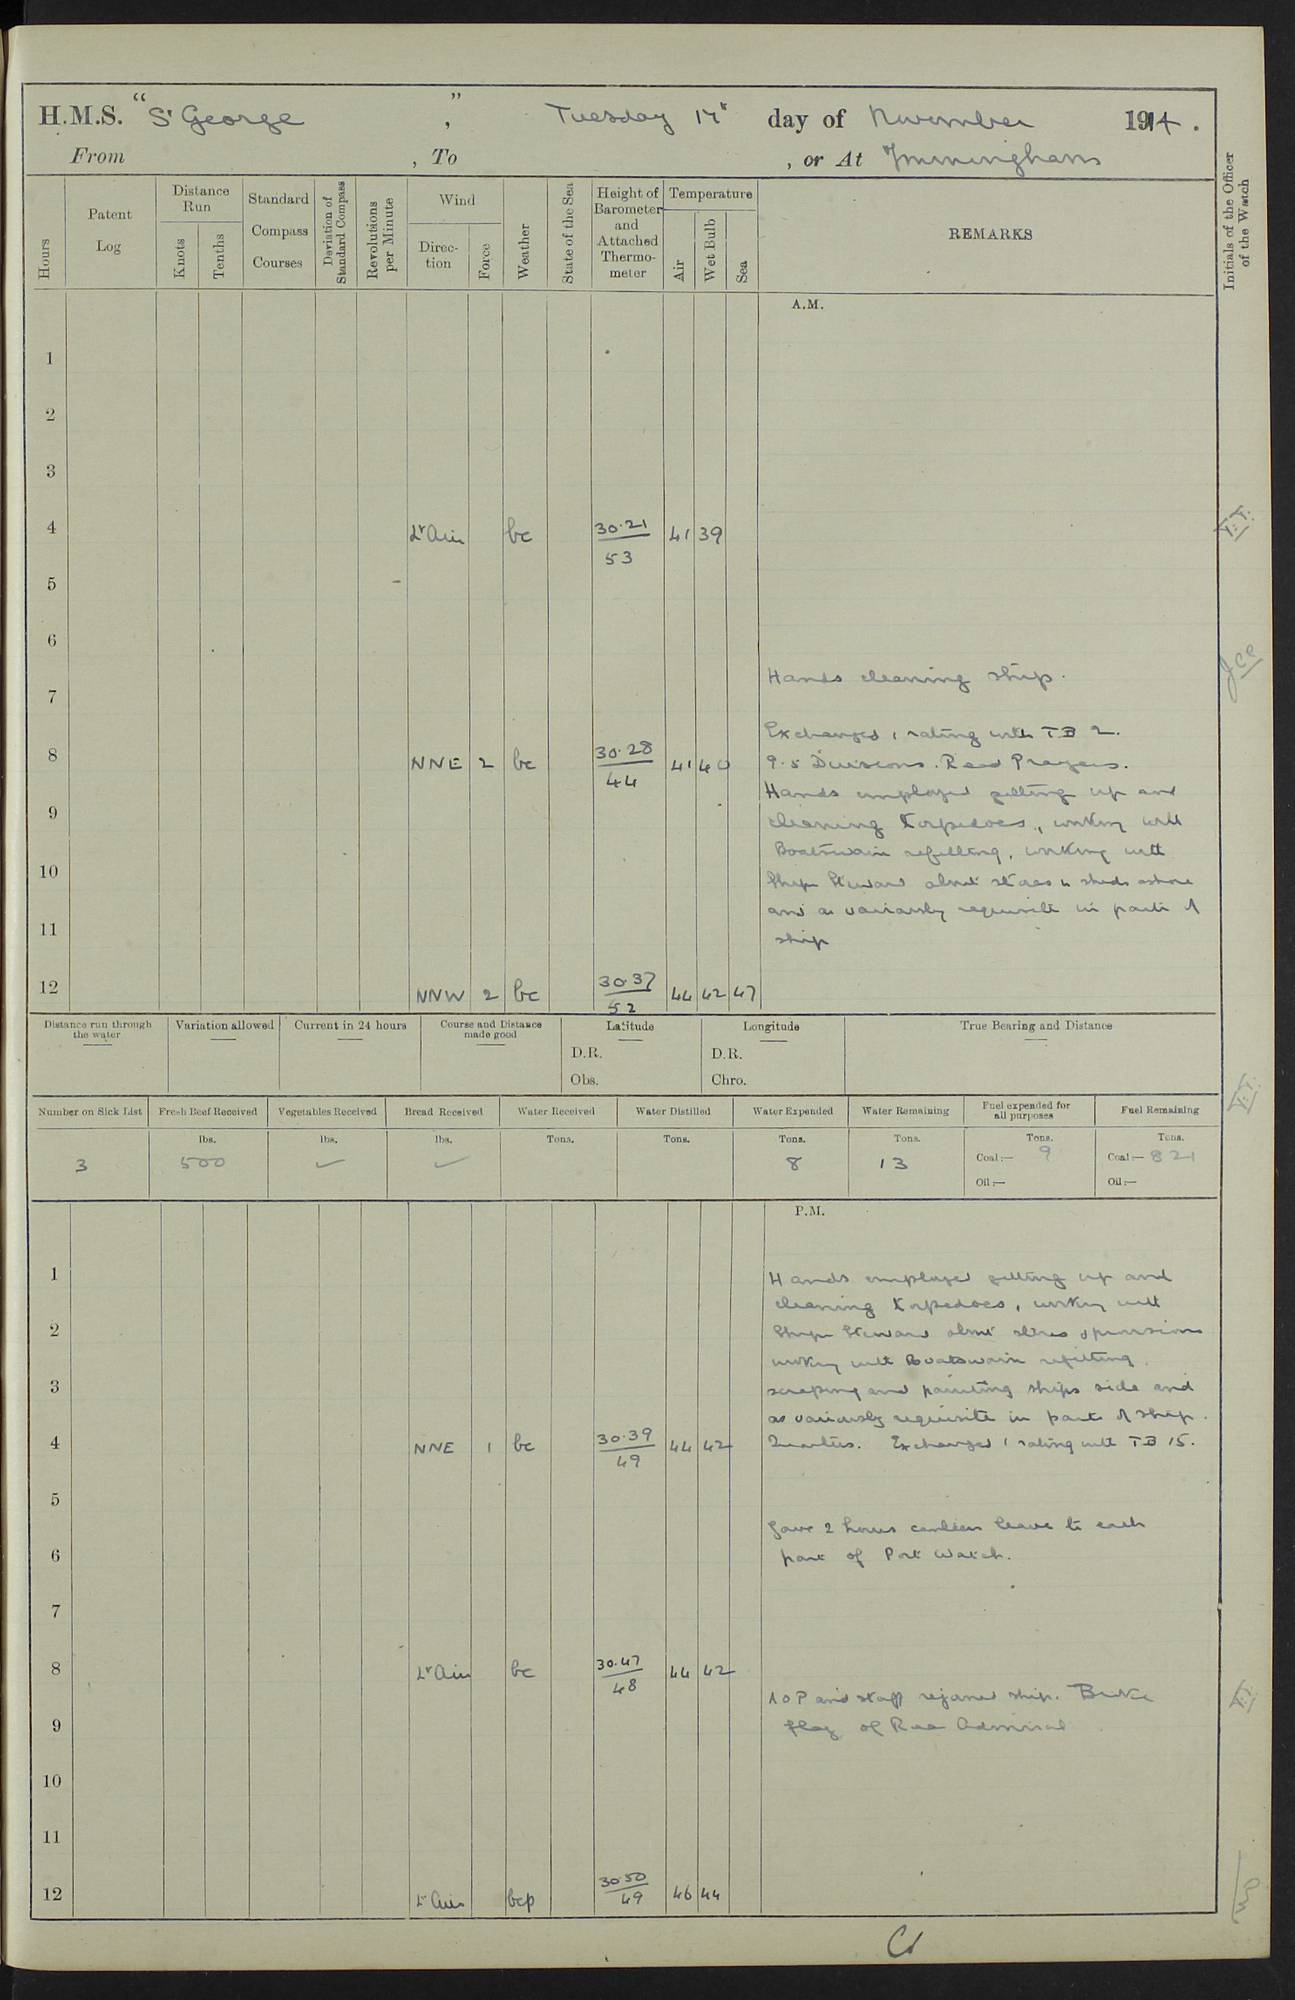 H.M.S. "St George", Tuesday 17th day of November 1914.
From , To , or At Immingham
Hours
Patent Log
Distance Run
Knots
Tenths
Standard Compass Courses
Deviation of Standard Compass
Revolutions per Minute
Wind
Direction
Force
Weather
State of the Sea
Height of Barometer and Attached Thermometer
Temperature
Air
Wet Bulb
Sea
REMARKS
Initials of the Officer of the Watch
A.M.
1
2
3
4 Lt Air bc 30.21/53 41 39
5
6
Hands cleaning ship.
7
Exchanged 1 rating with TB 2.
8 NNE 2 bc 30.28/44 41 40 9.5 Divisions. Read Prayers.
Hands employed getting up and
9
cleaning torpedoes, working with
Boatswain refitting, working with
10
Ships Steward about stores in sheds ashore
and as variously requisite in parts of
11
ship
12 NNW 2 bc 30.37/52 44 42 47
Distance run through the water
Variation allowed
Current in 24 hours
Course and Distance made good
Latitude
D.R.
Obs.
Longitude
D.R.
Chro.
True Bearing and Distance
Number on Sick List
Fresh Beef Received
Vegetables Received
Bread Received
Water Received
Water Distilled
Water Expended
Water Remaining
Fuel expended for all purposes
Fuel Remaining
lbs. lbs. lbs. Tons. Tons. Tons. Tons. Tons. Tons.
3 500 ✓ ✓ 8 13 Coal:— 9 Coal:— 821
Oil:— Oil:—
P.M.
1 Hands employed getting up and
cleaning torpedoes, working with
2 Ships Steward about stores & provisions
working with Boatswain refitting.
3 scraping and painting ships side and
as variously requisite in parts of ship.
4 NNE 1 bc 30.39/49 44 42 Quarters. Exchanged 1 rating with TB 15.
5
Gave 2 hours canteen leave to each
6 part of Port Watch.
7
8 Lt Air bc 30.47/48 44 42
AOP and staff rejoined ship. Broke
9 flag of Rear Admiral
10
11
12 Lt Airs bcp 30.50/49 46 44